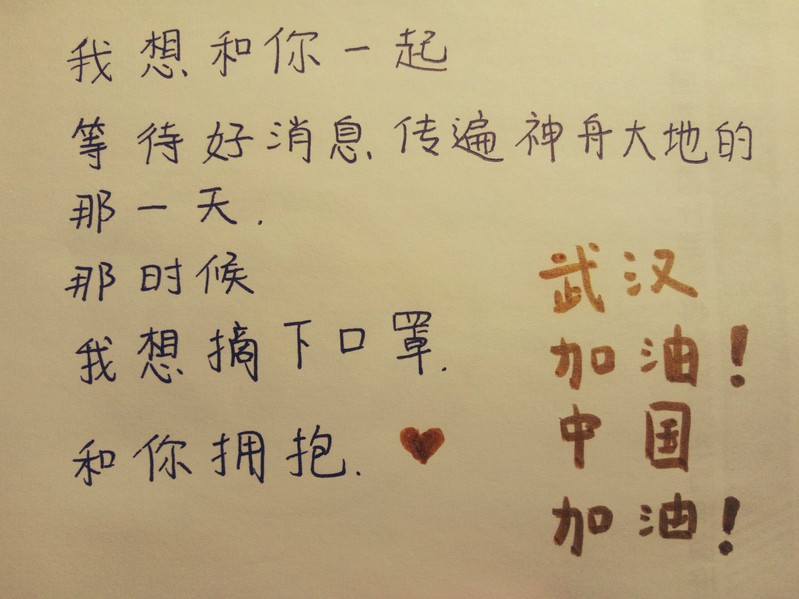 我想和你一起
等待好消息传遍神舟大地的
那一天.
那时候
我想摘下口罩.
和你拥抱.
武汉
加油!
中国
加油!